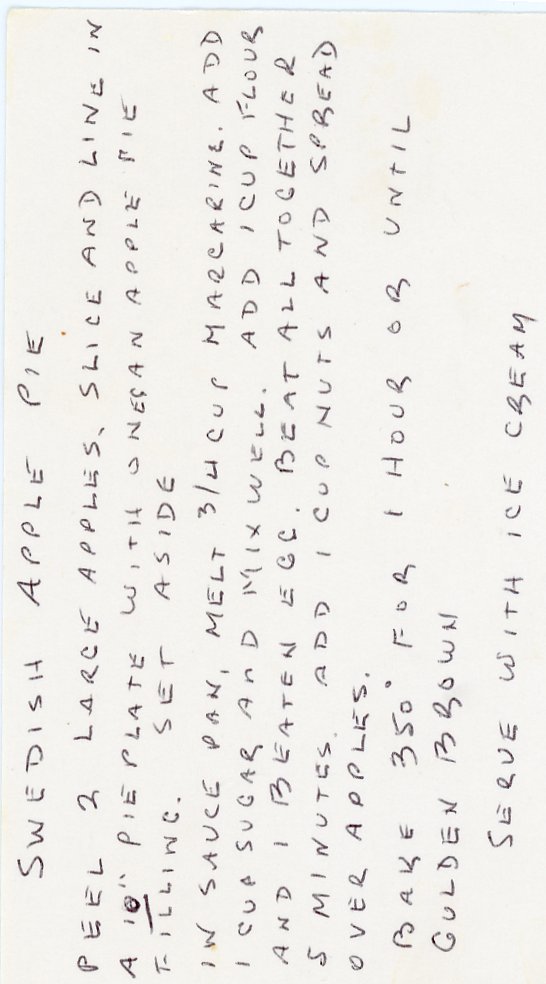 SWEDISH APPLE PIE
PEEL 2 LARGE APPLES, SLICE AND LINE IN
A 10" PIE PLATE WITH ONE CAN APPLE PIE
FILLING. SET ASIDE
IN SAUCE PAN, MELT 3/4 CUP MARGARINE. ADD
1 CUP SUGAR AND MIX WELL. ADD 1 CUP FLOUR
AND 1 BEATEN EGG. BEAT ALL TOGETHER
5 MINUTES. ADD 1 CUP NUTS AND SPREAD
OVER APPLES.
BAKE 350° FOR 1 HOUR OR UNTIL
GOLDEN BROWN
SERVE WITH ICE CREAM